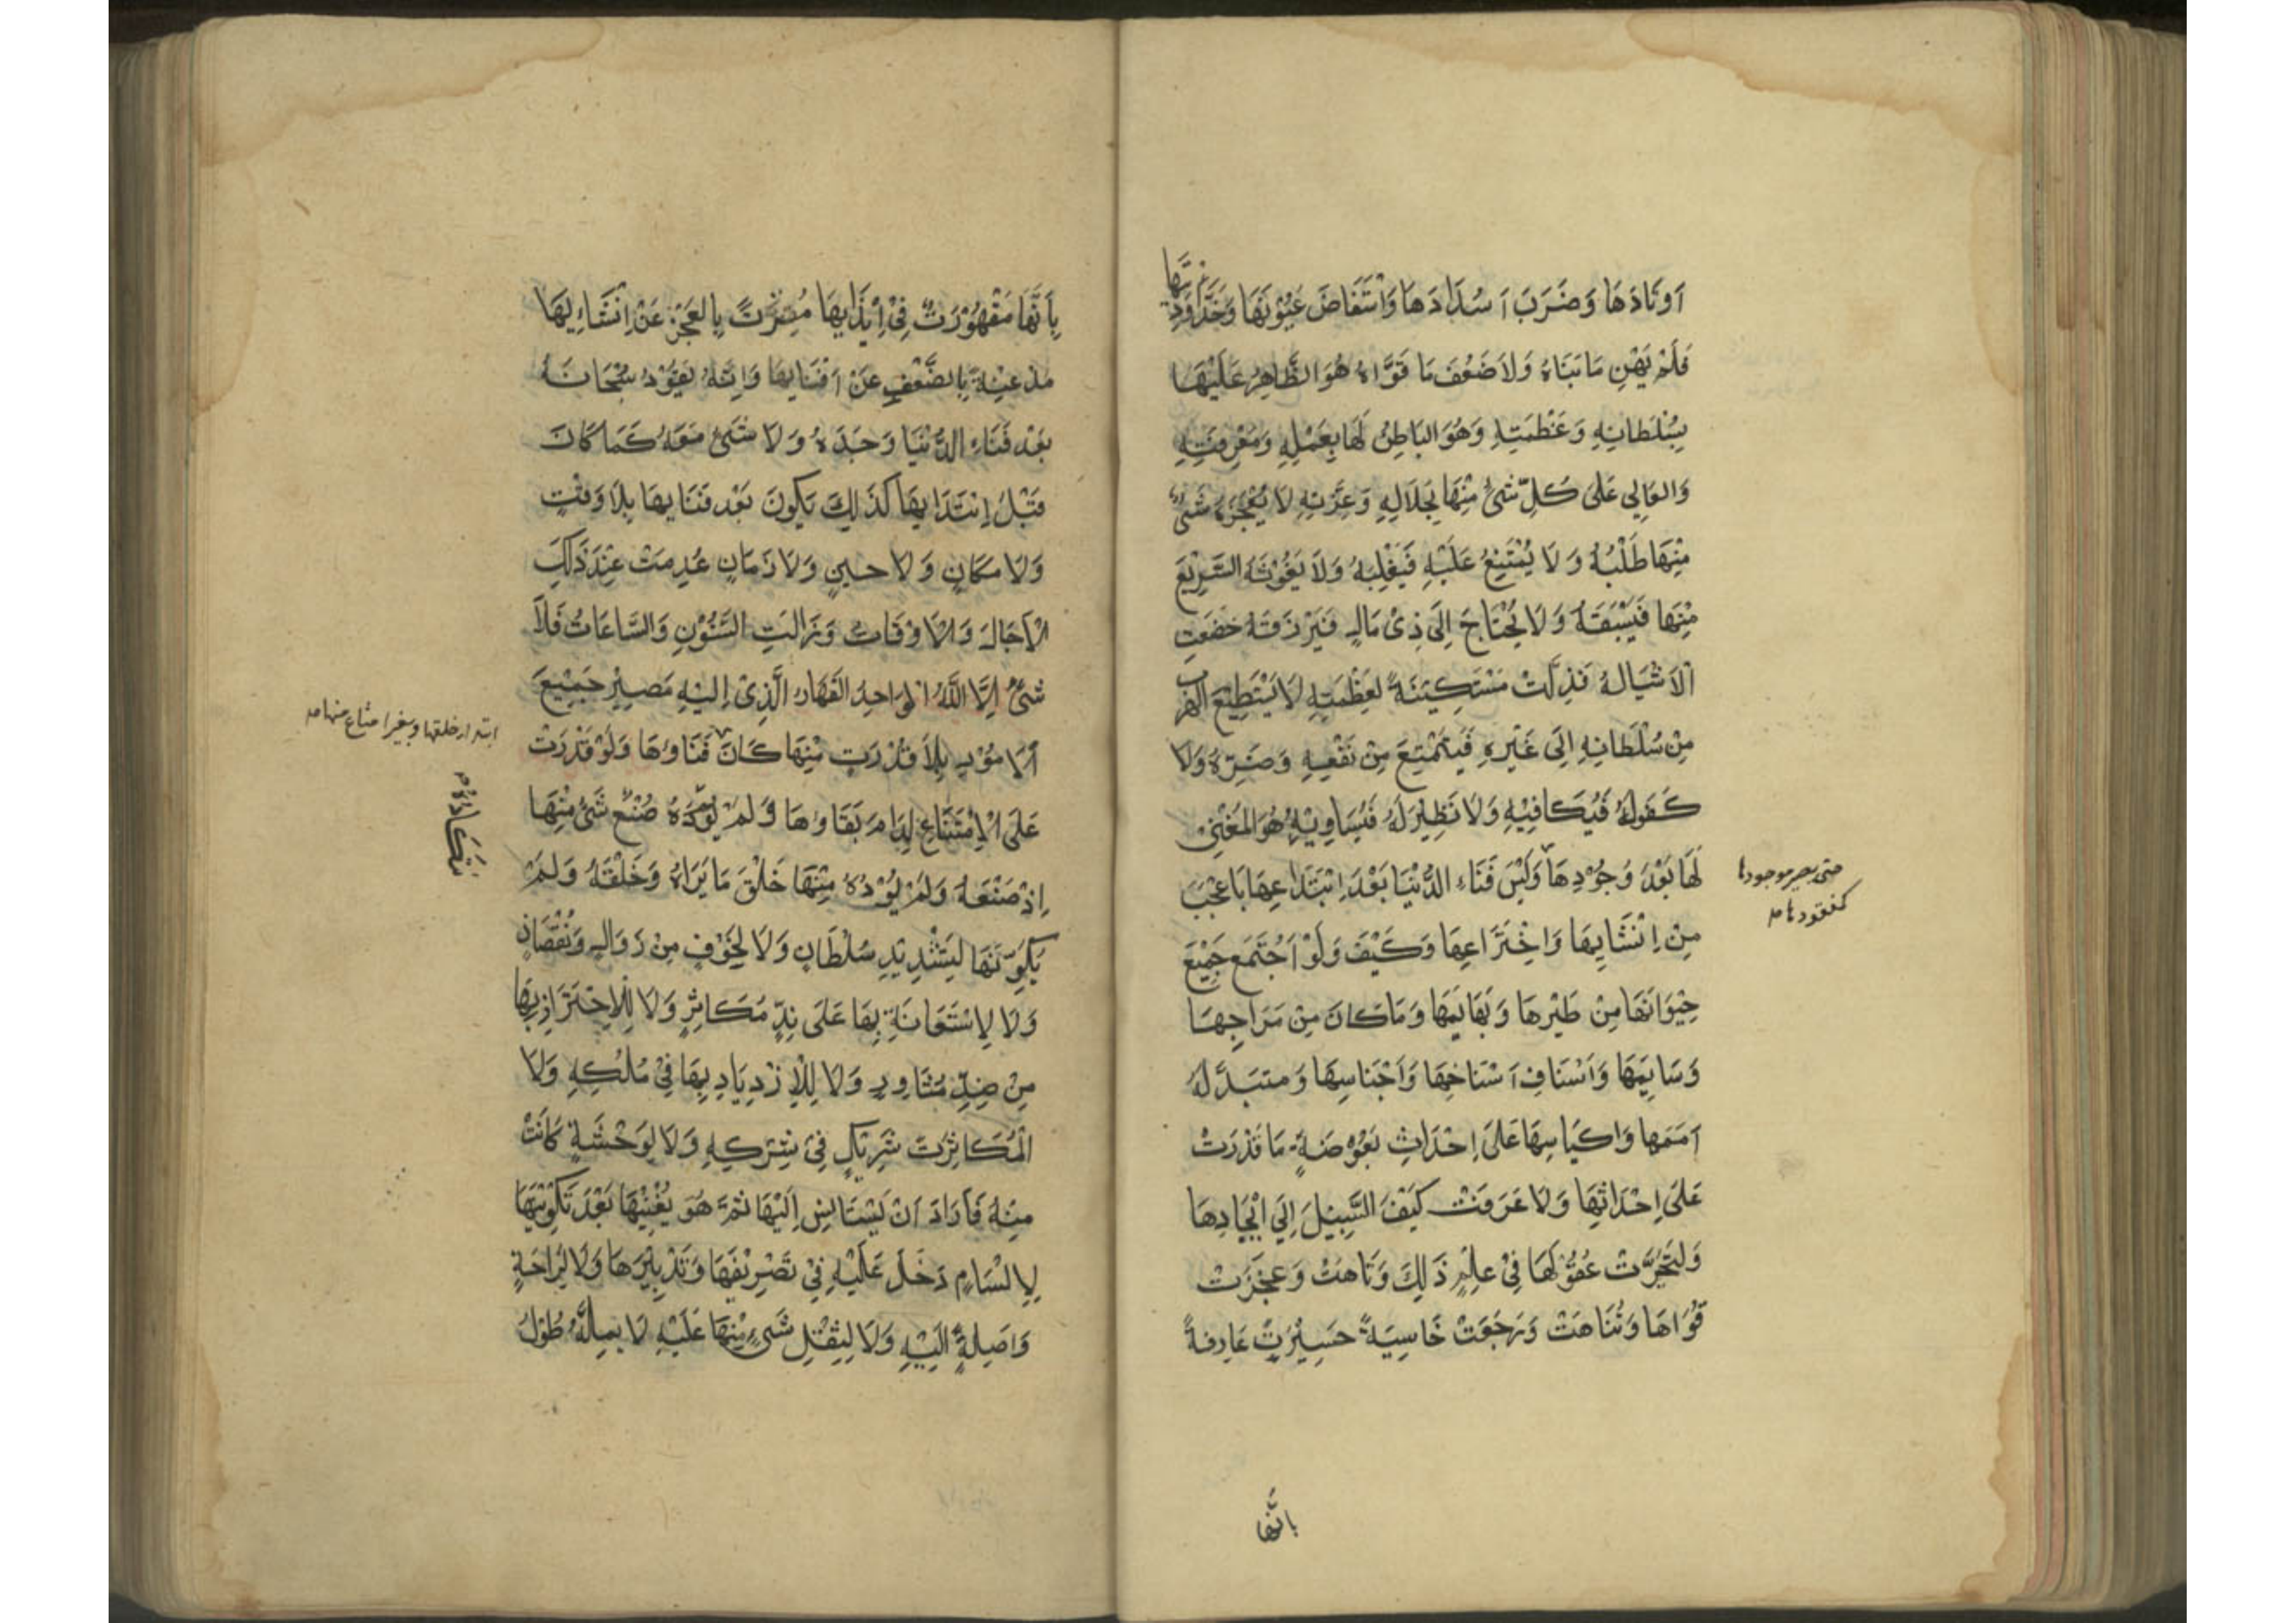 اَوتَادَهَا وَضَرَبَ اَسْدَادَهَا وَاسْتَفَاضَ عُيُوْنَهَا وَخَدَّاَوْدِيَتَهَا
فَلَمْ يَهْنِ مَا بَنَاهُ وَلَا ضَعُفَ مَا قَوَّاهُ هُوَ الظَّاهِرُ عَلَيْهَا
بِسُلْطَانِهِ وَعَظْمَتِهِ وَهُوَ البَاطِنُ لَهَا بِعِلْمِهِ وَمَعْرِفَتِهِ
وَالعَالِي عَلَى كُلِّ شَئْ مِنْهَا بِجَلَالِهِ وَعِزَّتِهِ لَا يُعْجِزُهُ شَئْ
مِنْهَا طَلَبُهُ وَلَا يُمْتَنِعُ عَلَيْهِ فَيَغْلِبَهُ وَلَا يَفُوْتُهُ السَّرِيْعَ
مِنْهَا فَيَسْبِقَهُ وَلَا يُحْتَاجَ اِلَى ذِىْ مَالٍ فَيَرْزَقَهُ خَضَعَتِ
الْاَشْيَالهُ فَذِلَّتْ مُسْتَكِيْنَةً لِعَظْمَتِهِ لَا يَسْتَطِيْعَ الهَرَبَ
مِنْ سُلْطَانِهِ اِلَى غَيْرِهِ فَيَمْتَنِعَ مِنْ نَفْعِهِ وَضَرِّهِ وَلَا
كُفُولَهُ فَيُكَافِيْهِ وَلَا نَظِيْرَ لَهُ فَيُسَاوِيْهِ هُوَ المُفْنِىْ
لَهَا بَعْدَ وُجُوْدِهَا وَلَيْسَ فَنَاءُ الدُّنْيَا بَعْدَ اِبْتِدَاعِهَا بِاَعْجَبَ
حتى يصير موجودها
كمفقودها صه
مِنْ اِنْشَايِهَا وَاخْتِرَاعِهَا وَكَيْفَ وَلَوْ اَجْتَمَعَ جَمِيْعَ
حِيْوَانَهَا مِنْ طَيْرِهَا وَبَهَايِمَهَا وَمَا كَانَ مِنْ مَرَاحِهَا
وَسَايِمَهَا وَاَسْنَافِ اَسْنَاخِهَا وَاَجْنَاسِهَا وَمتبَدَّلَهُ
اَمَمَهَا وَاكيَاسِهَا عَلَى اِحْدَاثِ بَعُوْضَةٍ مَا قَدَرَتْ
عَلَى اِحْدَاثِهَا وَلَا عَرَفَتْ كَيْفَ السَّبِيْلَ اِلَى اِيْجَادِهَا
وَلَتَحَيَّرَتْ عُقُوْلَهَا فِىْ عِلْمِ ذَلِكَ وَتَاهَتْ وَعَجَزَتْ
قُوَاهَا وَتَنَاهَتْ وَرَجَعَتْ خَاسِيَةً حَسِيْرَتً عَارِفَةً
بانَّها
بِاَنَّهَا مَقْهُوْرَتٌ فِىْ اِبْدَايِهَا مُقِرَّتً بِالعَجْزِ عَنْ اِنْشَاءِيهَا
مذعِنَةً بِالضَّعْفِ عَنْ اَفْنَايِهَا وَاِنَّهُ يَعُوْدُ سُبْحَانَهُ
بَعْدَ فَنَاءِ الدُّنْيَا وَحْدَهُ وَلَا شَئْ مَعَهُ كَمَا كَانَ
قَبْلَ اِبْتَدَايِهَا كَذَلِكَ يَكُونَ بَعْدَ فَنَايِهَا بِلَا وَقْتٍ
وَلَا مَكَانٍ وَلَا حِينٍ وَلَا زَمَانٍ عُدِمَتْ عِنْدَ ذَلِكَ
الْآجَالَ وَالْاَوْقَاتُ وَزَالَتِ السَّنُوْنِ وَالسَّاعَاتُ فَلَا
شَئْ اِلَّا اللهُ الوَاحِدُ القَهَارُ الَّذِىْ اِلَيْهِ مَصِيْرِ جَمِيْعَ
اَلْاُمُوْرِ بِلَا قُدْرَتٍ مِنْهَا كَانَ فَنَاؤُهَا وَلَوْ قَدْرَتْ
ابتداء خلقها وبغير امتناع منها صه
عَلَى الْاِمْتَنَاعِ لَدَامَ بَقَاؤُهَا وَلَمْ يَتَكَاءَدْهُ صُنْعُ شَئْ مِنْهَا
اِذْ صَنَعَهُ وَلَمْ يُؤْدْهُ مِنْهَا خَلْقَ مَا بَرَاهُ وَخَلْقَهُ وَلَمْ
يُكَوِّنَهَا لِتَشْدِيْدِ سُلْطَانٍ وَلَا لِخَوْفٍ مِنْ زَوَالٍ وَنُقْصَانٍ
وَلَا لِاسْتَعَانَةِ بِهَا عَلَى نِدٍّ مُكَاثِرٍ وَلَا لِلْاِحْتَرَازِ بِهَا
مِنْ ضِدٍّ مُثَاوِرٍ وَلَا لِلْاِزْدِيَادِ بِهَا فِىْ مُلْكِهِ وَلَا
الْمُكَاثِرَتَ شَرِيْكٍ فِىْ شِرْكِهِ وَلَا لِوَحْشَةٍ كَانَتْ
مِنْهُ فَاَرَادَ اَنْ يَسْتَانِسَ اِلَيْهَا ثُمَّ هُوَ يُفْنِيْهَا بَعْدَ تَكْوِيْنِهَا
لَا لِسَامٍ دَخَلَ عَلَيْهِ فِىْ تَصْرِيْفِهَا وَتَدْبِيْرِهَا وَلَا لِرَاحَةٍ
وَاصِلَةٍ اِلَيْهِ وَلَا لِثِقْلِ شَئْ مِنْهَا عَلَيْهِ لَا يمِلُّهُ طُوْلُ